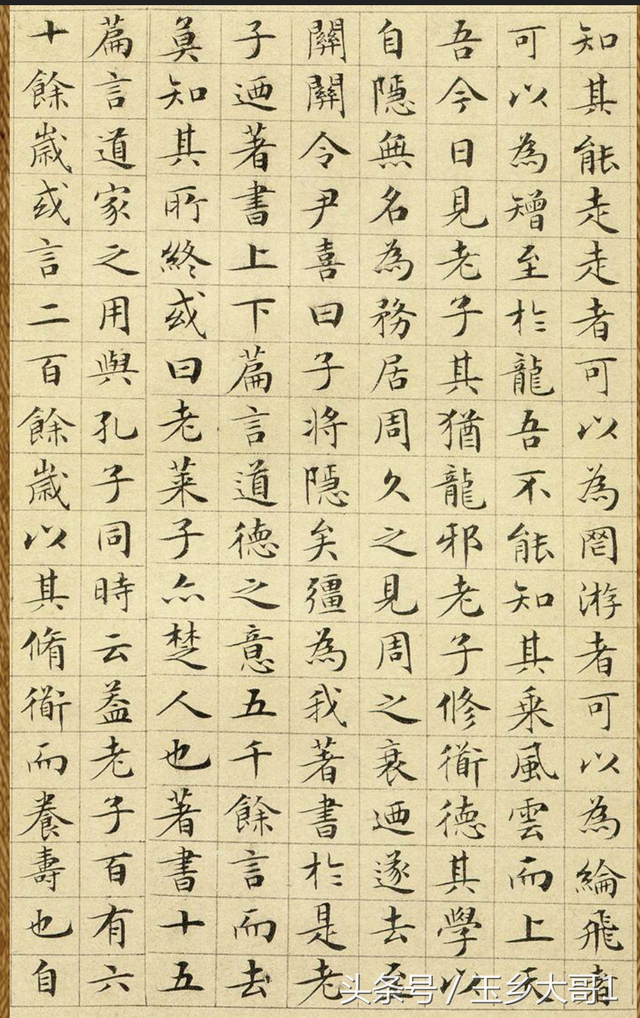 知其能走走者可以為罔游者可以為綸飛者
可以為矰至於龍吾不能知其乗風雲而上天
吾今日見老子其猶龍邪老子修衜德其學以
自隱無名為務居周久之見周之衰迺遂去至
關關令尹喜曰子將隱矣彊為我著書於是老
子迺著書上下篇言道德之意五千餘言而去
莫知其所終或曰老萊子亦楚人也著書十五
篇言道家之用與孔子同時云葢老子百有六
十餘歲或言二百餘歲以其脩衜而養壽也自
头条号 / 玉乡大哥1